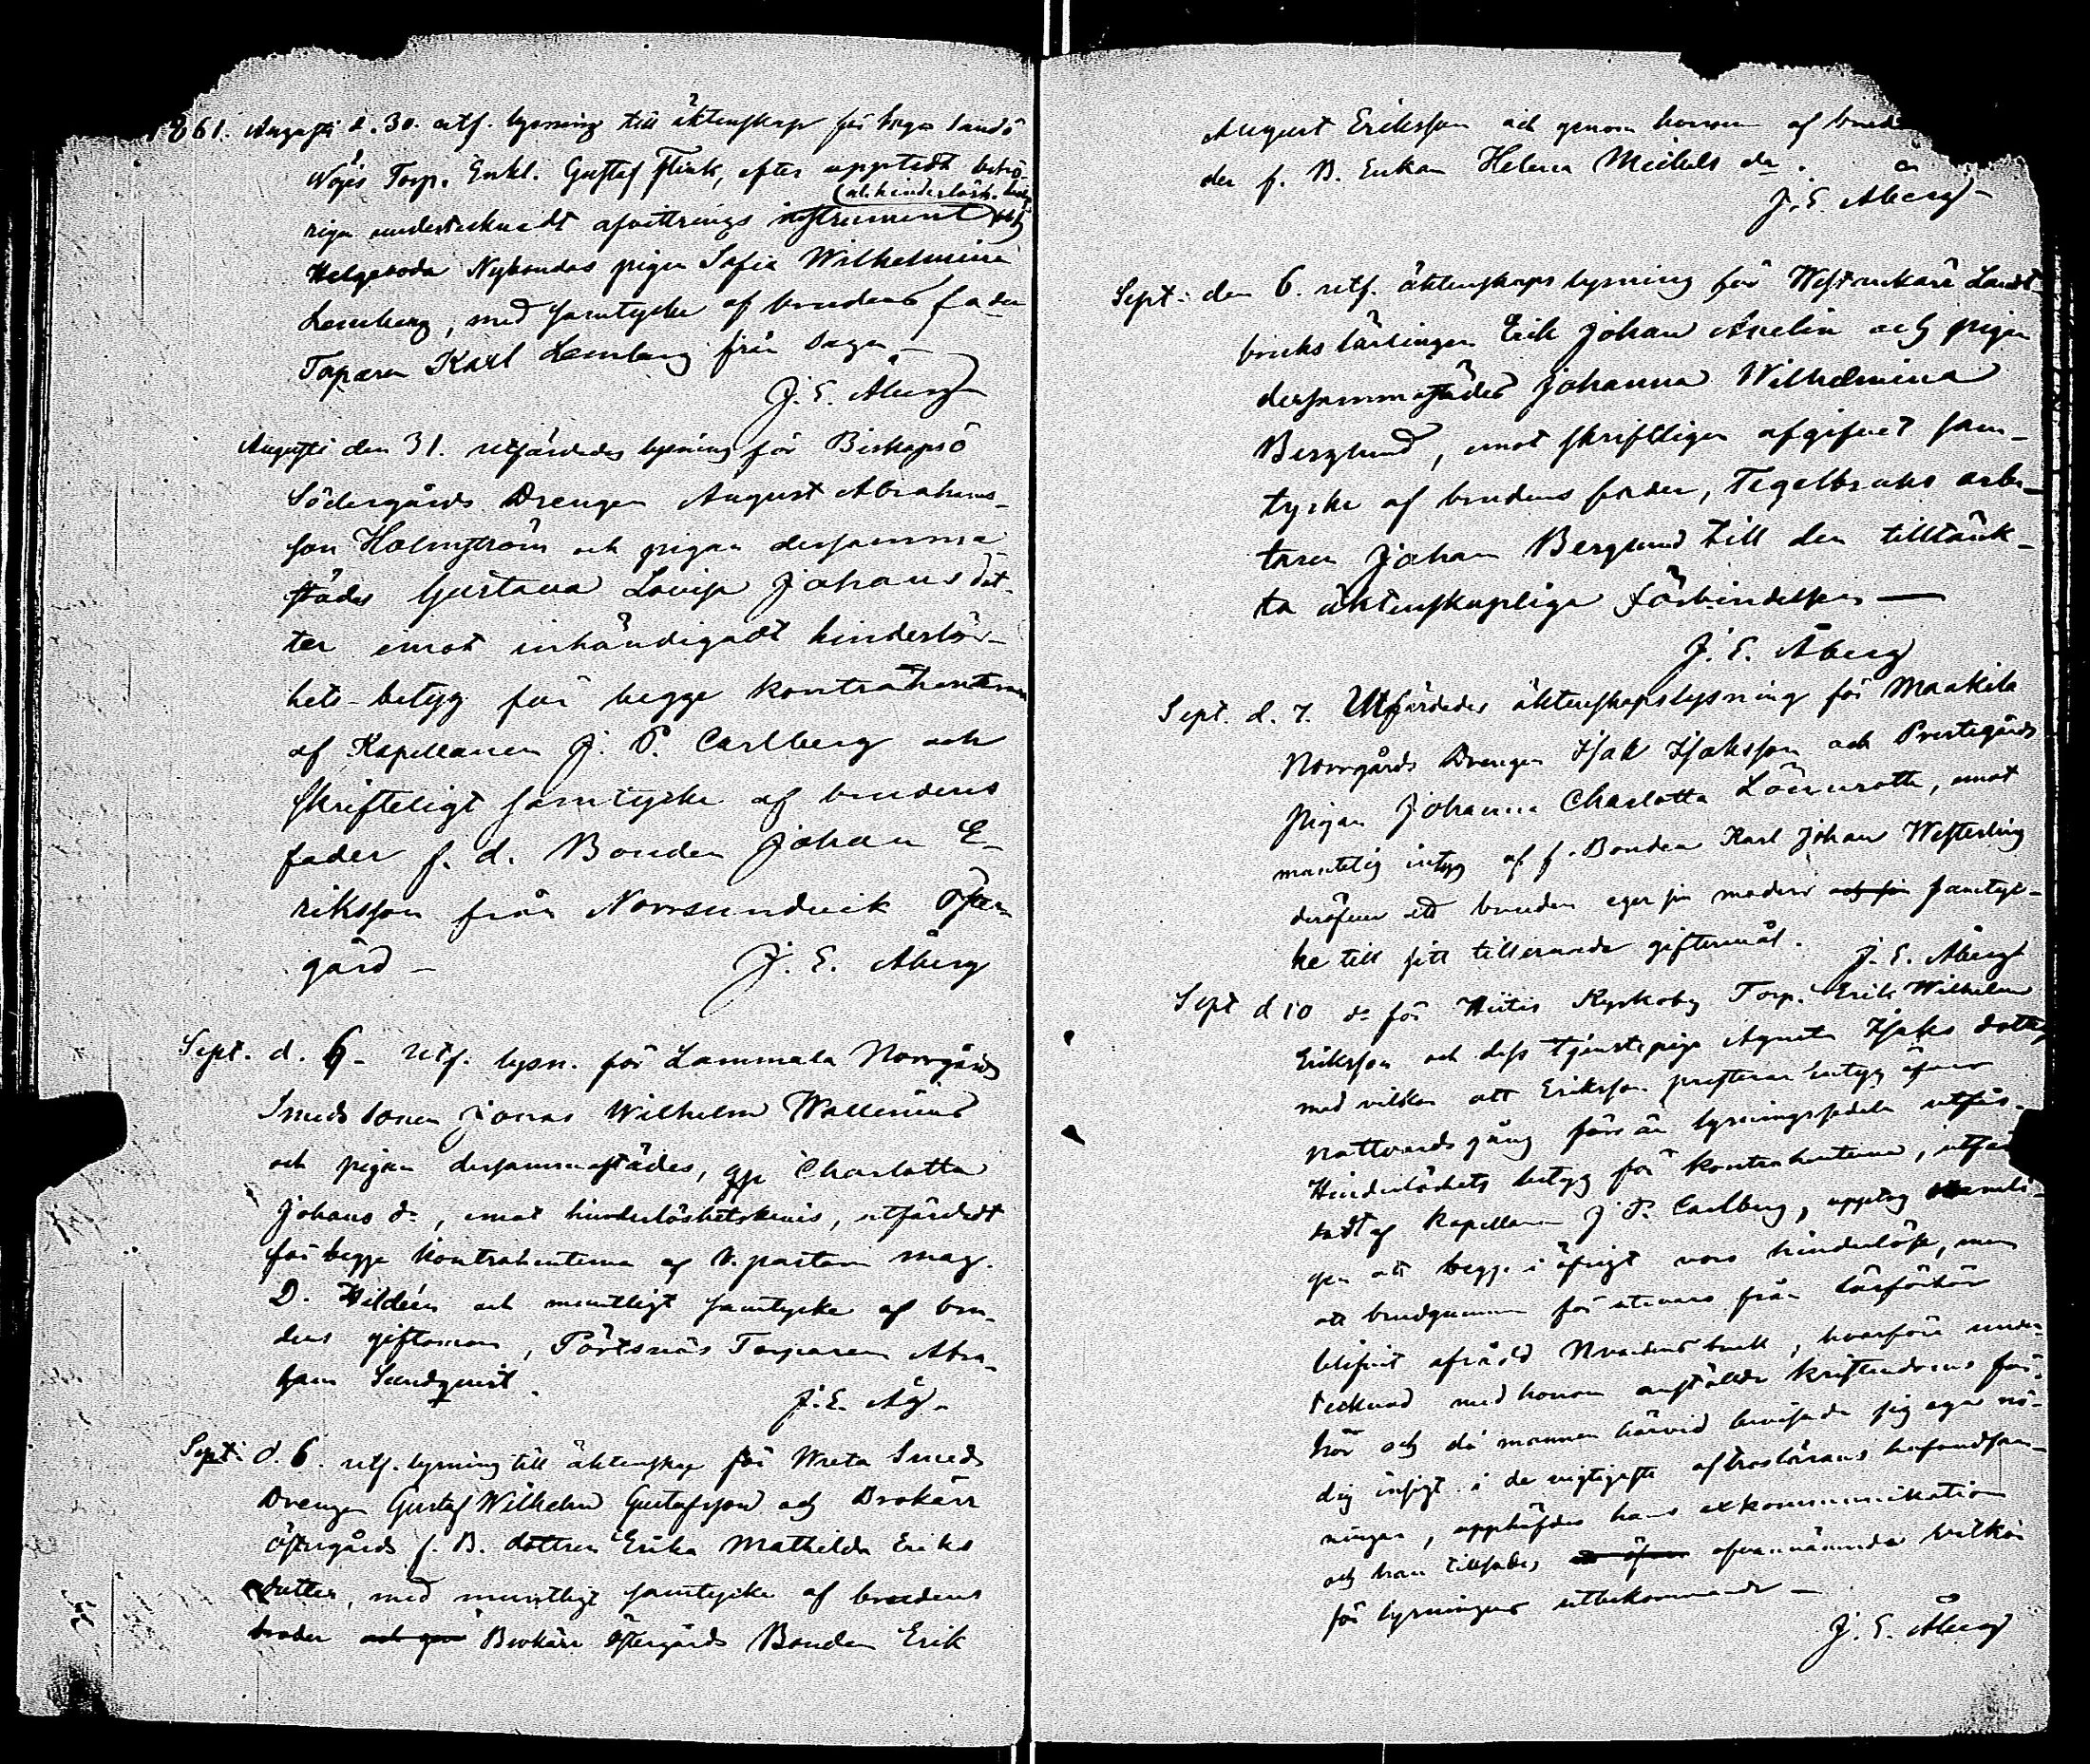 1861. Augusti d. 30. utf. lysning till äktenskap för Sagu Sandö
Nöjis Torp. Enkl. Gustaf Flink, efter uppstedt behö-
(ock hinderlösh. betyg
rigen undertecknadt afvittrings instrument och
Helgeboda Nybondas pigan Sofia Wilhelmina
Lemberg, med samtycke af brudens fader
Torparen Karl Lemberg från Sagu.
J. E. Åberg
Augusti den 31. utfärdades lysning för Biskopsö
Södergårds Drengen August Abrahams-
son Holmström och pigan dersamma-
städes Gustava Lovisa Johans dot-
ter emot inhändigadt hinderlös-
hets-betyg för begge kontrahenterna
af Kapellanen J. P. Carlberg och
skrifteligt samtycke af brudens
fader f. d. Bonden Johan E-
riksson från Norrsundvik Öster-
gård –
J. E. Åberg
Sept. d. 6. utf. lysn. för Lammala Norrgårds
Smeds sonen Jonas Wilhelm Wallenius
och pigan dersammastädes, Charlotta
Johans dr, emot hinderlöshetsbevis, utfärdadt
för begge kontrahenterna af V. pastorn mag.
D. Hildeén och muntligt samtycke af bru-
dens giftoman, Pörtsnäs Torparen Abra-
ham Sundqvist.
J. E. Åg.
Sept. d. 6. utf. lysning till äktenskap för Wreta Smeds
Drengen Gustaf Wilhelm Gustafsson och Brokärr
östergårds f. B. dottren Erika Mathilda Eriks
dotter, med muntligt samtycke af brudens
broder Brokärr östergårds Bonden Erik
August Eriksson och genom honom af
der f. B. Enkan Helena Mickels dr.
J. E. Åberg
Sept. den 6. utf. äktenskaps lysning för Westankärr Landt-
bruks lärlingen Erik Johan Axelin och pigan
dersammastädes Johanna Wilhelmina
Berglund, emot skriftligen afgifvet sam-
tycke af brudens fader, Tegelbruks arbe-
taren Johan Berglund till den tilltänk-
ta äktenskapliga förbindelsen —
J. E. Åberg
Sept. d. 7. Utfärdades äktenskapslysning för Maakila
Norrgårds Drengen Isak Isaksson och Prestegårds
pigan Johanna Charlotta Lönnroth, emot
muntelig intyg af f. Bonden Karl Johan Westerling
deröfver att bruden eger sin moders samtyc-
ke till sitt tillernade giftermål.
J. E. Åberg
Sept d 10 do för Hitis Kyrkoby Torp. Erik Wilhelm
Eriksson och dess tjenstepiga Agneta Isaks dotter
med vilkor att Eriksson presterar betyg öfver
nattvards gång förr än lysningssedeln utfär-
Hinderlöshets betyg för kontrahenterna, utfär-
dadt af Kapellanen J. P. Carlberg, upptog
gen att begge i öfrigt voro hinderlösa, men
att brudgummen för utevaro från läsförhör
blifvit afrådd Nvardens bruk, hvarföre under-
tecknad med honom anställde kristendoms för-
hör och då mannen härvid bevisade sig ega nö-
dig insigt i de vigtigaste af troslärans hufvudsan-
ningar, upphäfdes hans exkommunikation
och han tillsades ofvannämnda vilkor
för lysningens utbekommande —
J. E. Åberg